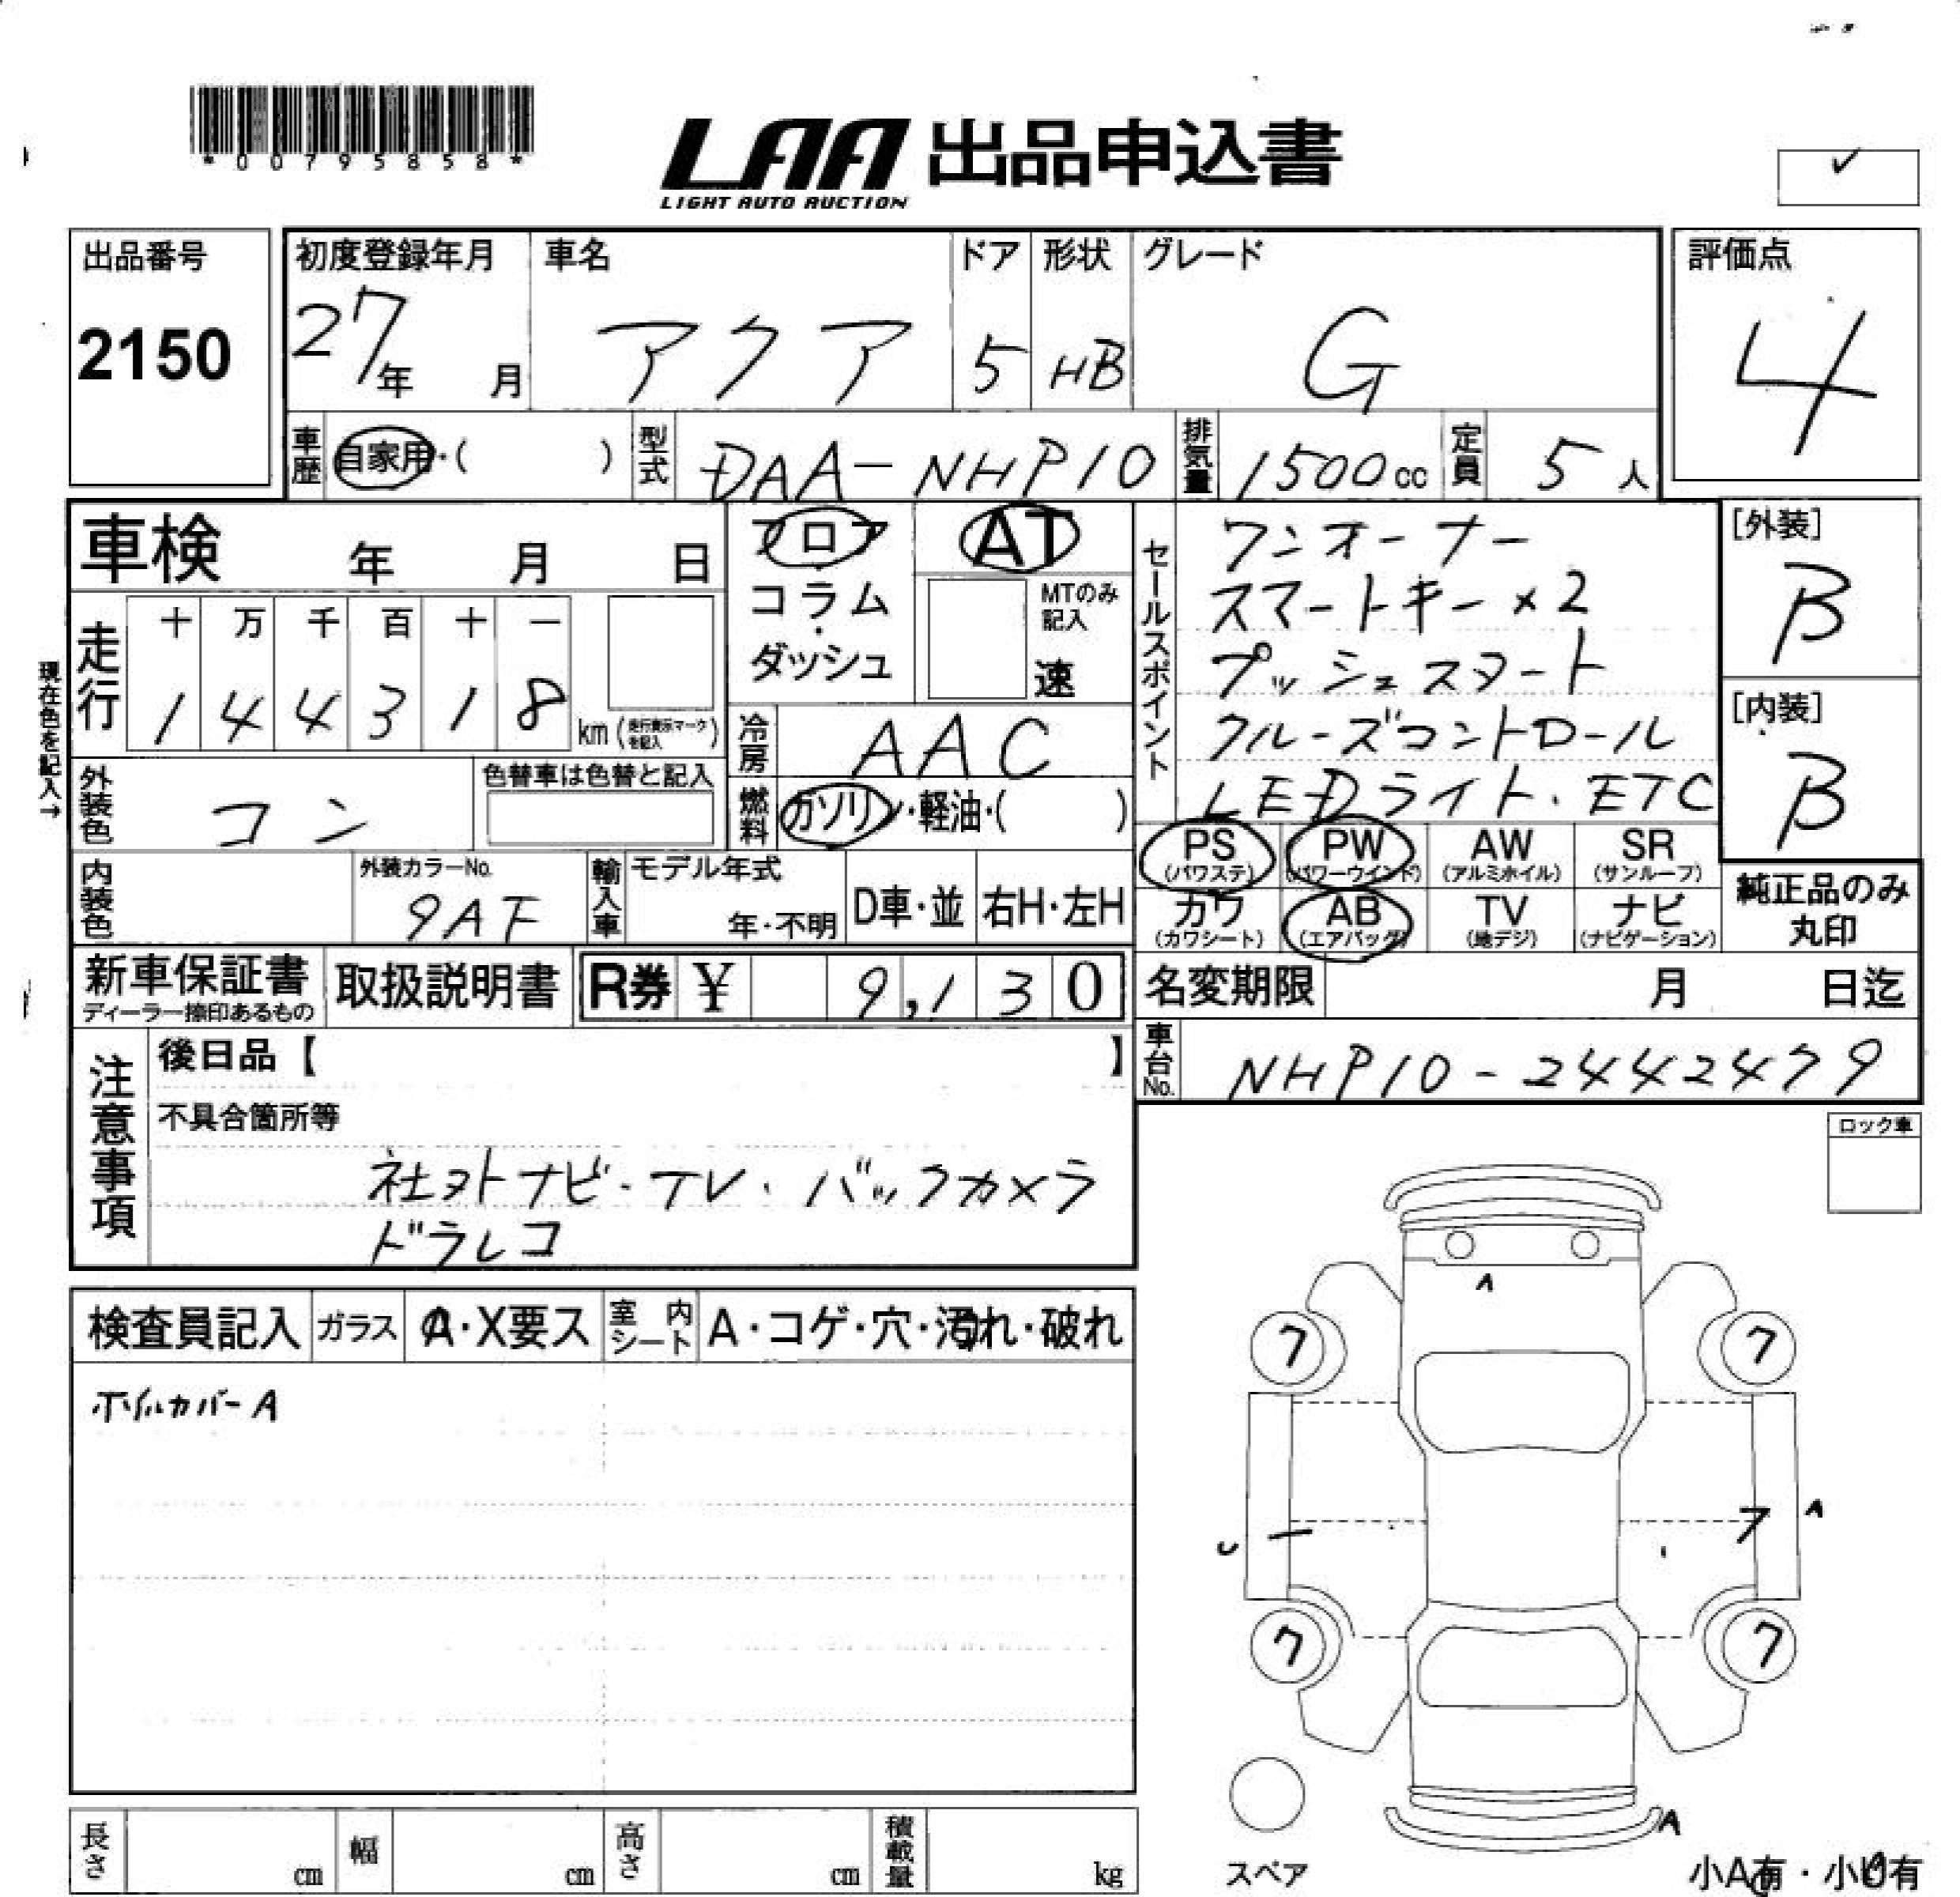 *00795858*
LAA 出品申込書
LIGHT AUTO AUCTION
✓
出品番号
2150
初度登録年月
27年 月
車名
アクア
ドア
5
形状
HB
グレード
G
評価点
4
車歴 自家用・( )
型式 DAA-NHP10
排気量 1500cc
定員 5人
車検 年 月 日
フロア
・
コラム
・
ダッシュ
AT
MTのみ記入
速
セールスポイント
ワンオーナー
スマートキー×2
プッシュスタート
クルーズコントロール
LEDライト・ETC
[外装]
B
[内装]
B
現在色を記入→
走行
十 万 千 百 十 一
1 4 4 3 1 8 km (走行表示マークを記入)
冷房 AAC
燃料 ガソリン・軽油・( )
外装色 コン
色替車は色替と記入
内装色
外装カラーNo.
9AF
輸入車 モデル年式
年・不明
D車・並 右H・左H
PS (パワステ)
PW (パワーウインド)
AW (アルミホイル)
SR (サンルーフ)
カワ (カワシート)
AB (エアバッグ)
TV (地デジ)
ナビ (ナビゲーション)
純正品のみ
丸印
新車保証書
ディーラー捺印あるもの
取扱説明書
R券 ¥ 9,130
名変期限 月 日迄
車台No. NHP10-2442479
注意事項
後日品【 】
不具合箇所等
社外ナビ・TV・バックカメラ
ドラレコ
ロック車
検査員記入 ガラス A・X要ス 室内シート A・コゲ・穴・汚れ・破れ
ホイルカバーA
A
7 7
U ー 7 A
7 7
A
スペア
小A有・小U有
長さ cm 幅 cm 高さ cm 積載量 kg